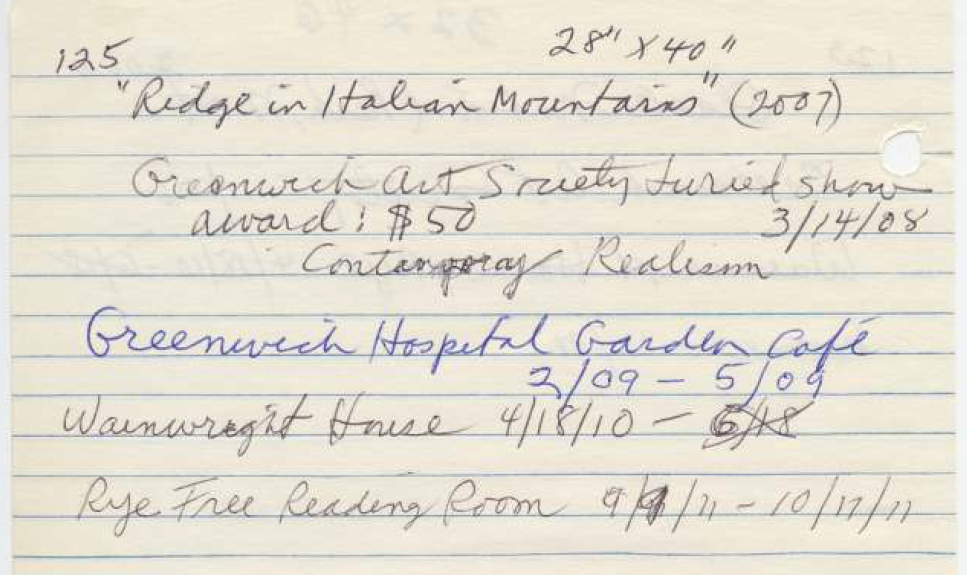 125 28" X 40"
"Ridge in Italian Mountains" (2007)
Greenwich Art Society Juried show
award: $50 3/14/08
Contemporary Realism
Greenwich Hospital Garden Café
2/09 - 5/09
Wainwright House 4/18/10 -
Rye Free Reading Room 9/9/11 - 10/17/11